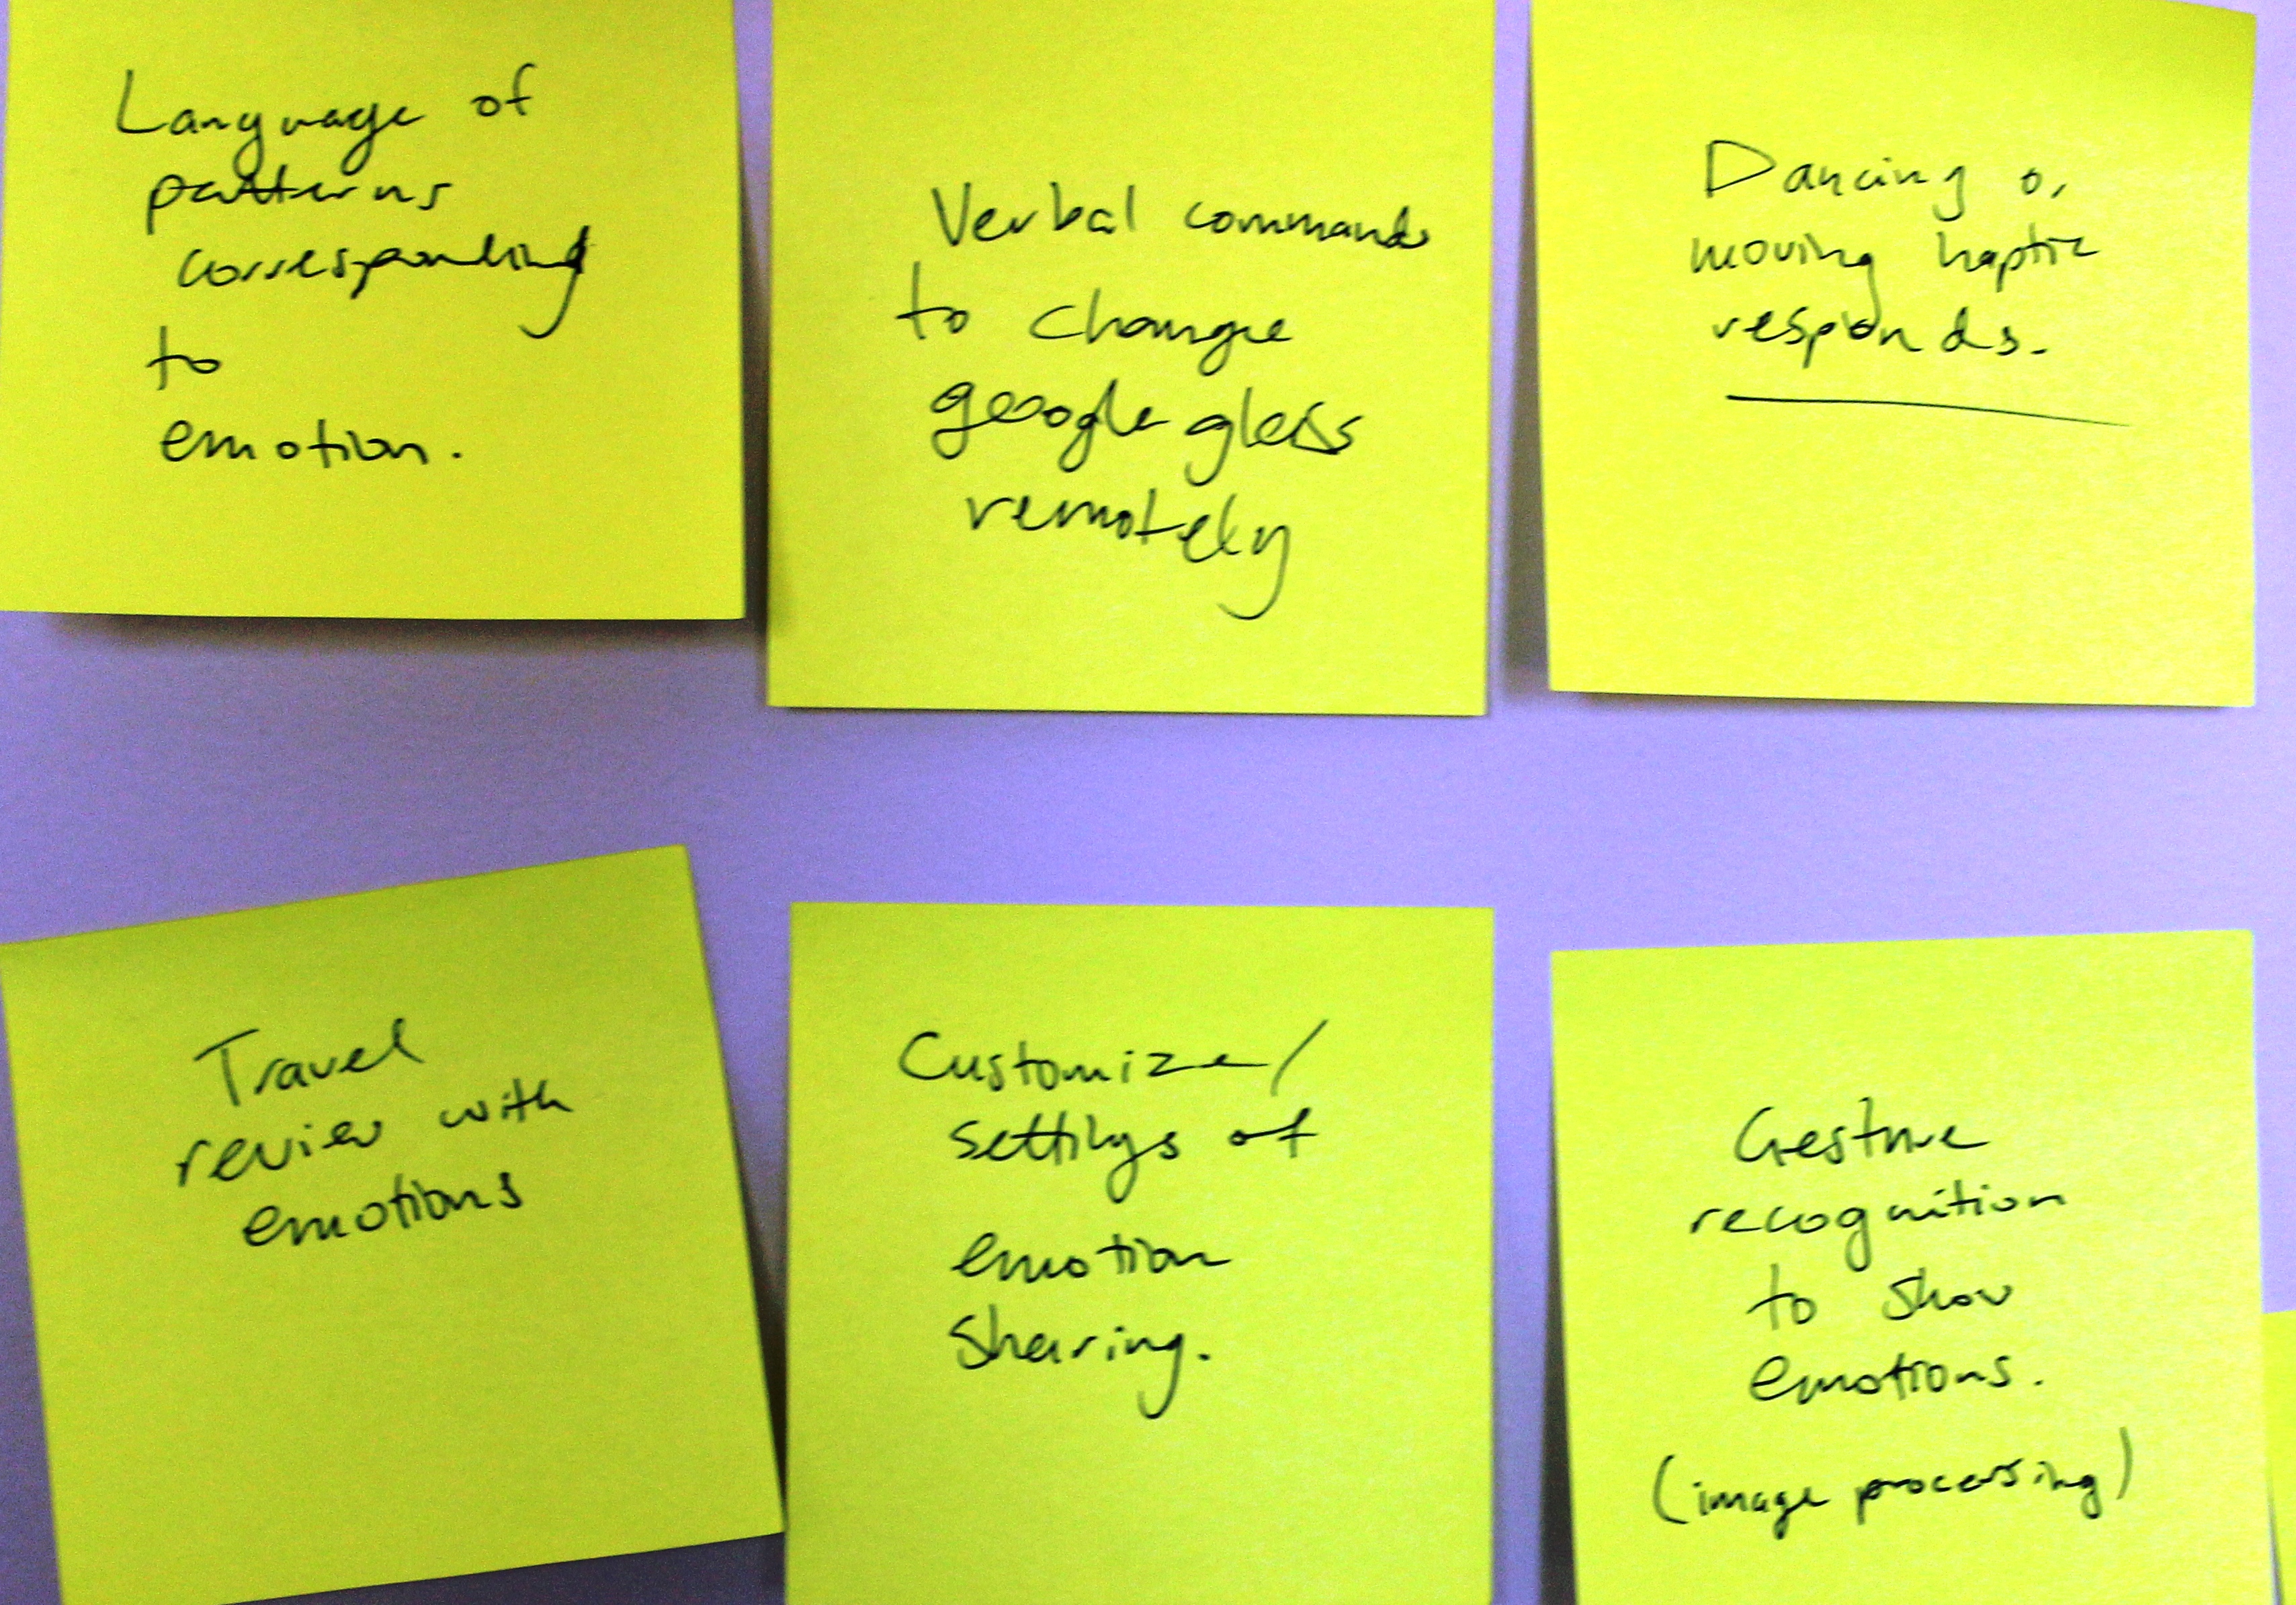 Language of
patterns
corresponding
to
emotion.
Verbal commands
to change
google glass
remotely
Dancing or
moving haptic
responds.
Travel
review with
emotions
Customize/
settings of
emotion
sharing.
Gesture
recognition
to show
emotions.
(image processing)